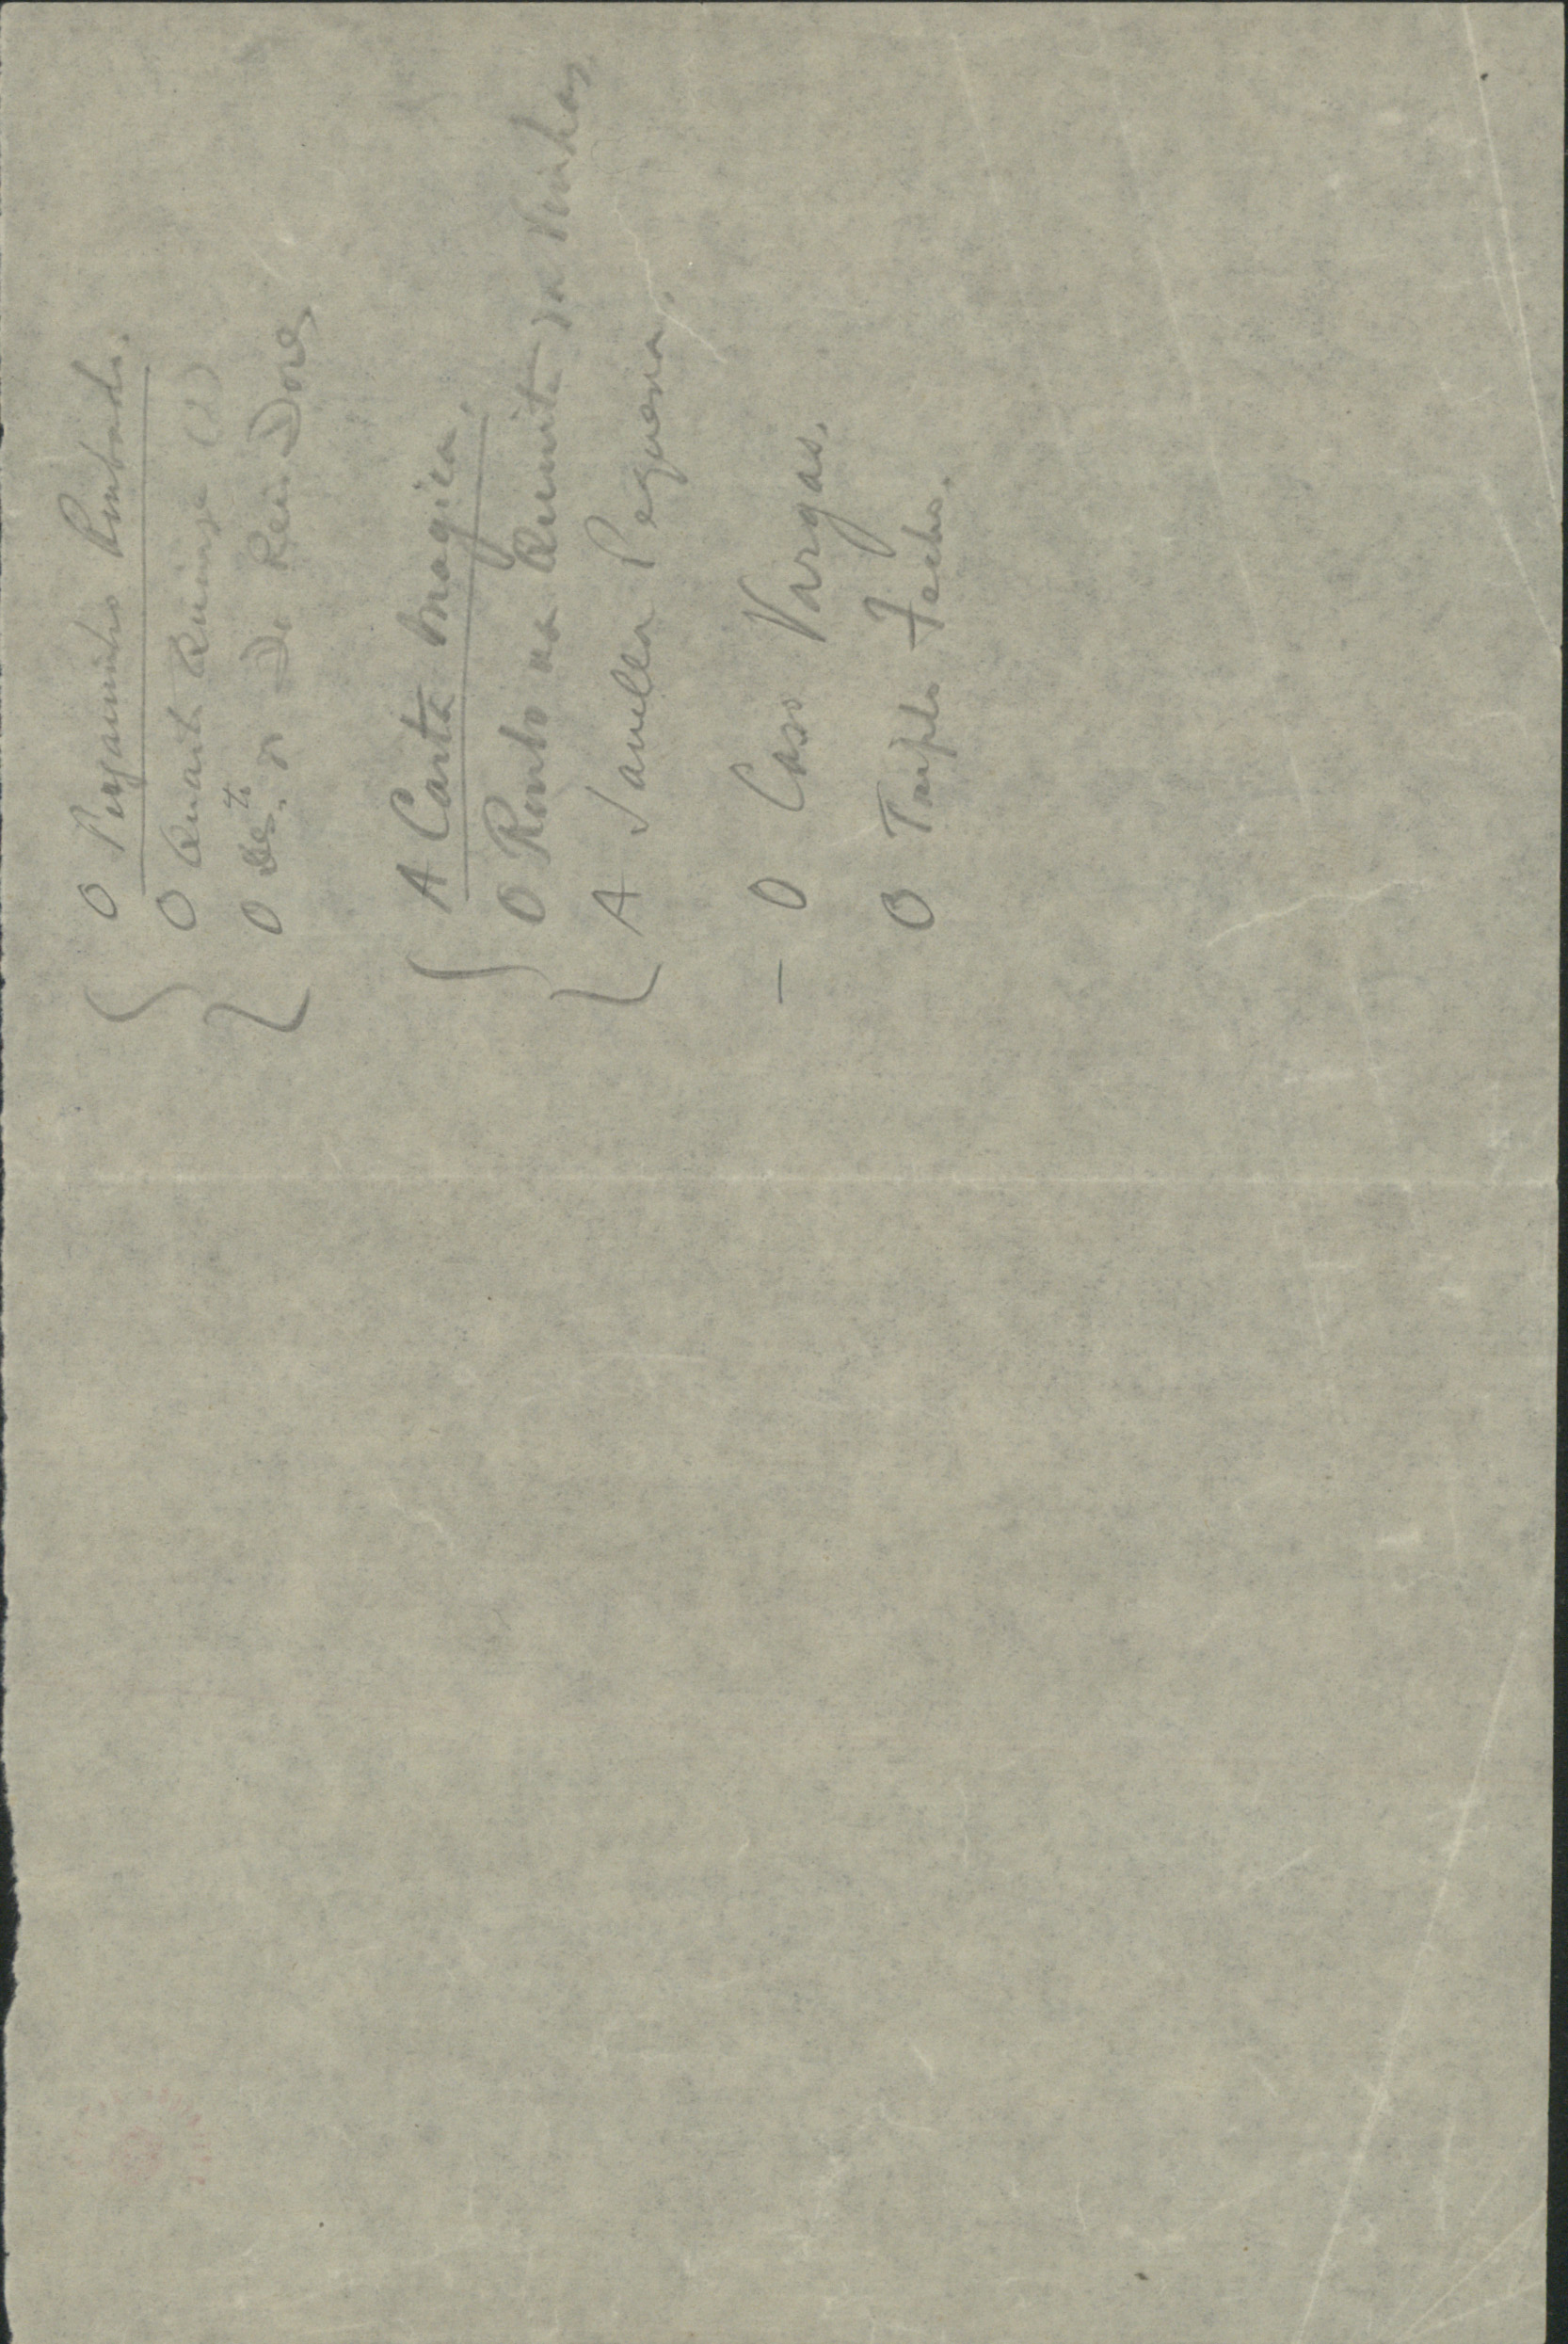 O Pergaminho Roubado.
O Quarto Quinze (?)
O Des.to do Dr Reis Dores
A Carta Magica.
O Roubo na Quinta das Vinhas
A Janella Pequena.
— O Caso Vargas.
O Triplo Fecho.